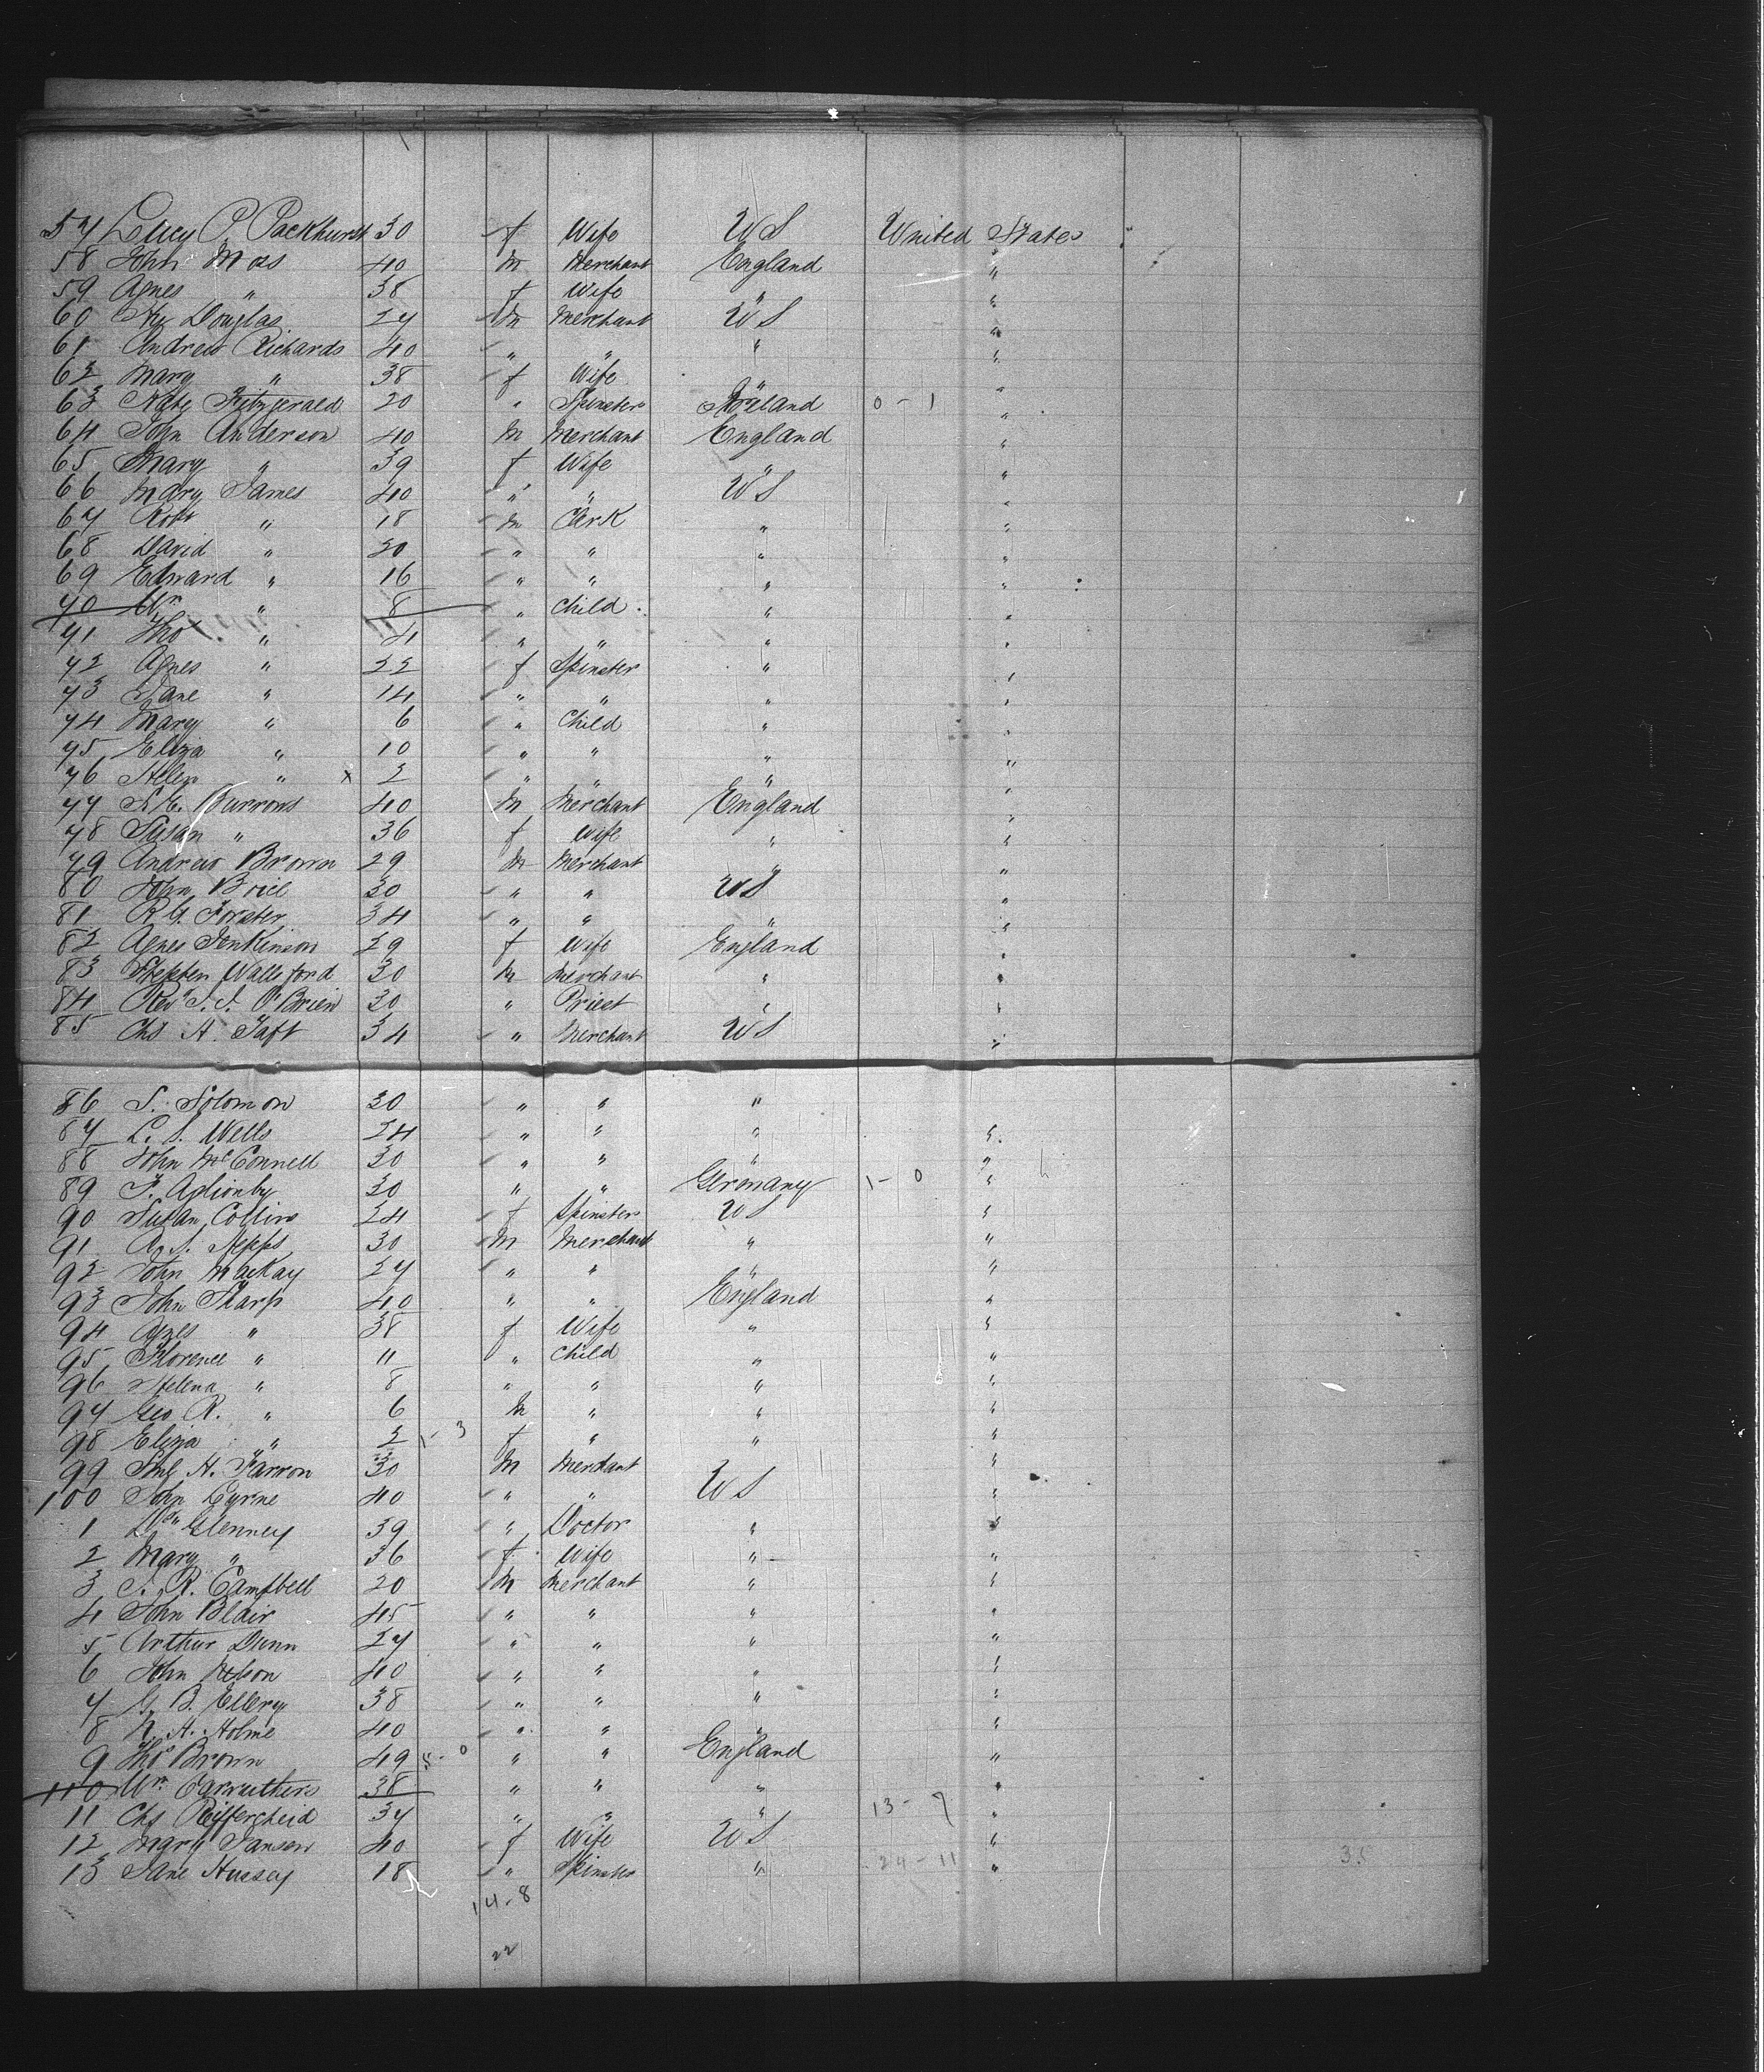 57 Lucy P Packhurst 30 f Wife US United States
58 John Moss 40 m Merchant England "
59 Agnes " 38 f Wife " "
60 Douglas 27 m Merchant US "
61 Andrew Richards 40 " " " "
62 Mary " 38 f Wife " "
63 Kate Fitzgerald 20 " Spinster Ireland 0-1 "
64 John Anderson 40 m Merchant England "
65 Mary " 39 f Wife " "
66 Mary James 40 " " US "
67 Robt " 18 m Clerk " "
68 David " 20 " " " "
69 Edward " 16 " " " "
70 Wm " 8 " Child " "
71 Tho " 4 " " " "
72 Agnes " 22 f Spinster " "
73 Jane " 14 " " " "
74 Mary " 6 " Child " "
75 Eliza " 10 " " " "
76 Helen " x 2 " " " "
77 Burrows 40 m Merchant England "
78 Susan " 36 f Wife " "
79 Andrew Brown 29 m Merchant " "
80 John Brice 30 " " US "
81 R G. Forster 34 " " " "
82 Agnes Jenkinson 29 f Wife England "
83 Stephen Wallsford 30 m Merchant " "
84 Revd J. J. O'Brien 30 " Priest " "
85 Chs A. Taft 34 " Merchant US "
86 S. Solomon 30 " " "
87 L. S. Wells 24 " " " "
88 John McConnell 30 " " " "
89 F. Aglionby 30 " " Germany 1-0 "
90 Susan Collins 24 f Spinster US "
91 A. S. 30 m Merchant " "
92 John Mackay 27 " " " "
93 John Sharp 40 " " England "
94 Agnes " 38 f Wife " "
95 Florence " 11 " Child " "
96 Helena " 8 " " " "
97 Geo R. " 6 m " " "
98 Eliza " 2 1-3 f " " "
99 H. Farron 30 m Merchant "
100 John Cyrne 40 " " US "
1 Glenney 39 " Doctor " "
2 Mary " 36 f Wife " "
3 J. R. Campbell 20 m Merchant " "
4 John Blair 45 " " " "
5 Arthur Dunn 27 " " " "
6 John Nelson 40 " " " "
7 G. B. Ellery 38 " " " "
8 N. A. Holme 40 " " " "
9 Thos Brown 49 5-0 " " England "
110 Wm Carruthers 38 " " " "
11 Chs Reiffercheid 37 " " " 13-7 "
12 Mary Jansen 40 f Wife US "
13 Jane Hussey 18 " Spinster " 24-11 " 35
14-8
22